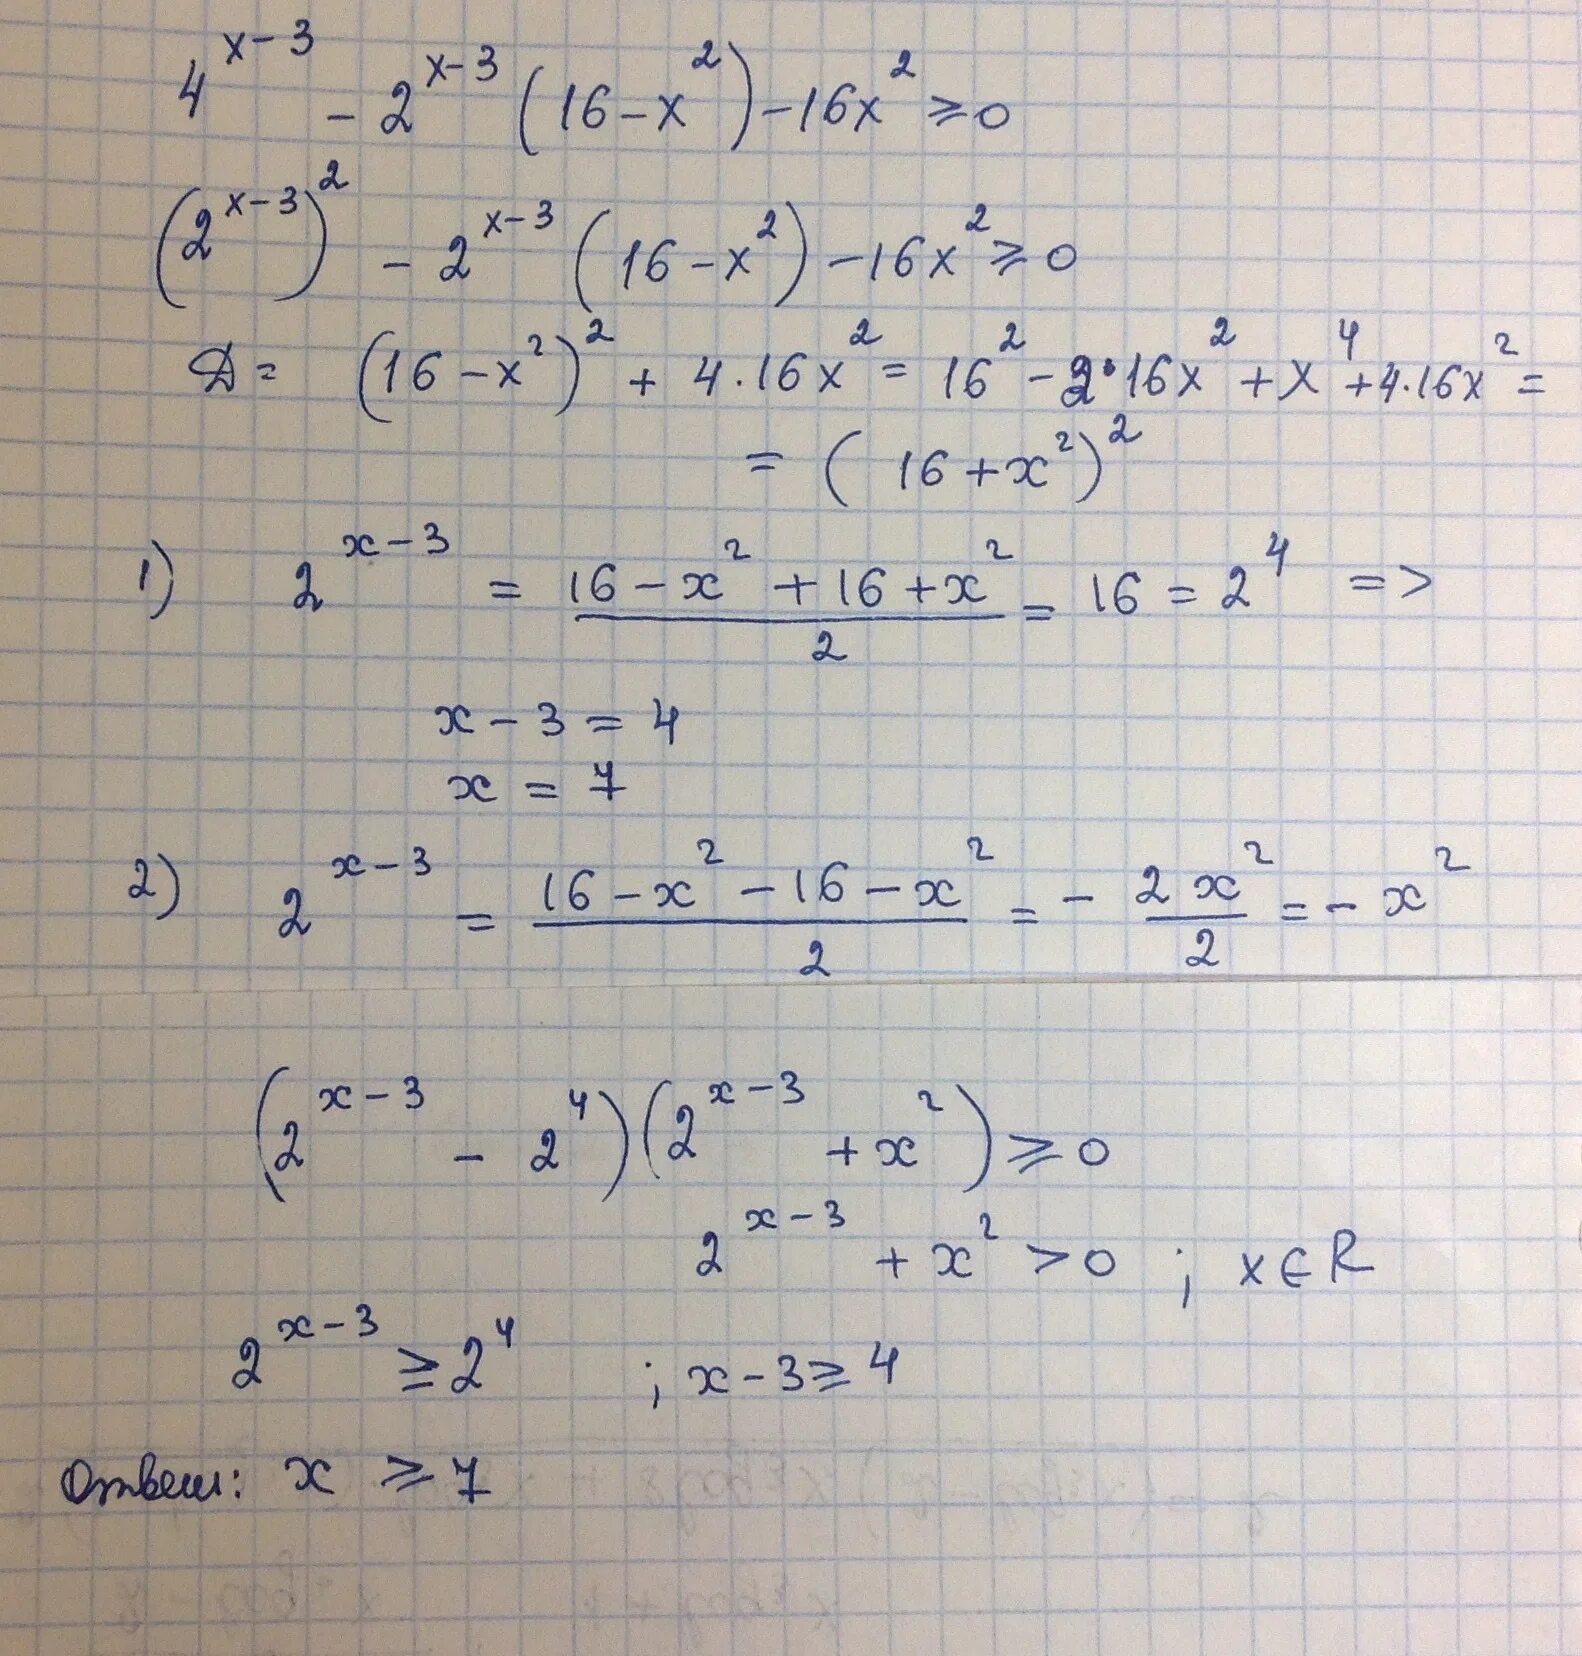 4^(x-3) - 2^(x-3) (16 - x²) - 16x² ≥ 0
(2^(x-3))² - 2^(x-3) (16 - x²) - 16x² ≥ 0
D = (16 - x²)² + 4·16x² = 16² - 2·16x² + x⁴ + 4·16x² =
= (16 + x²)²
1) 2^(x-3) = (16 - x² + 16 + x²)/2 = 16 = 2⁴ =>
x - 3 = 4
x = 7
2) 2^(x-3) = (16 - x² - 16 - x²)/2 = - 2x²/2 = - x²
(2^(x-3) - 2⁴)(2^(x-3) + x²) ≥ 0
2^(x-3) + x² > 0 ; x ∈ R
2^(x-3) ≥ 2⁴ ; x - 3 ≥ 4
Ответ: x ≥ 7